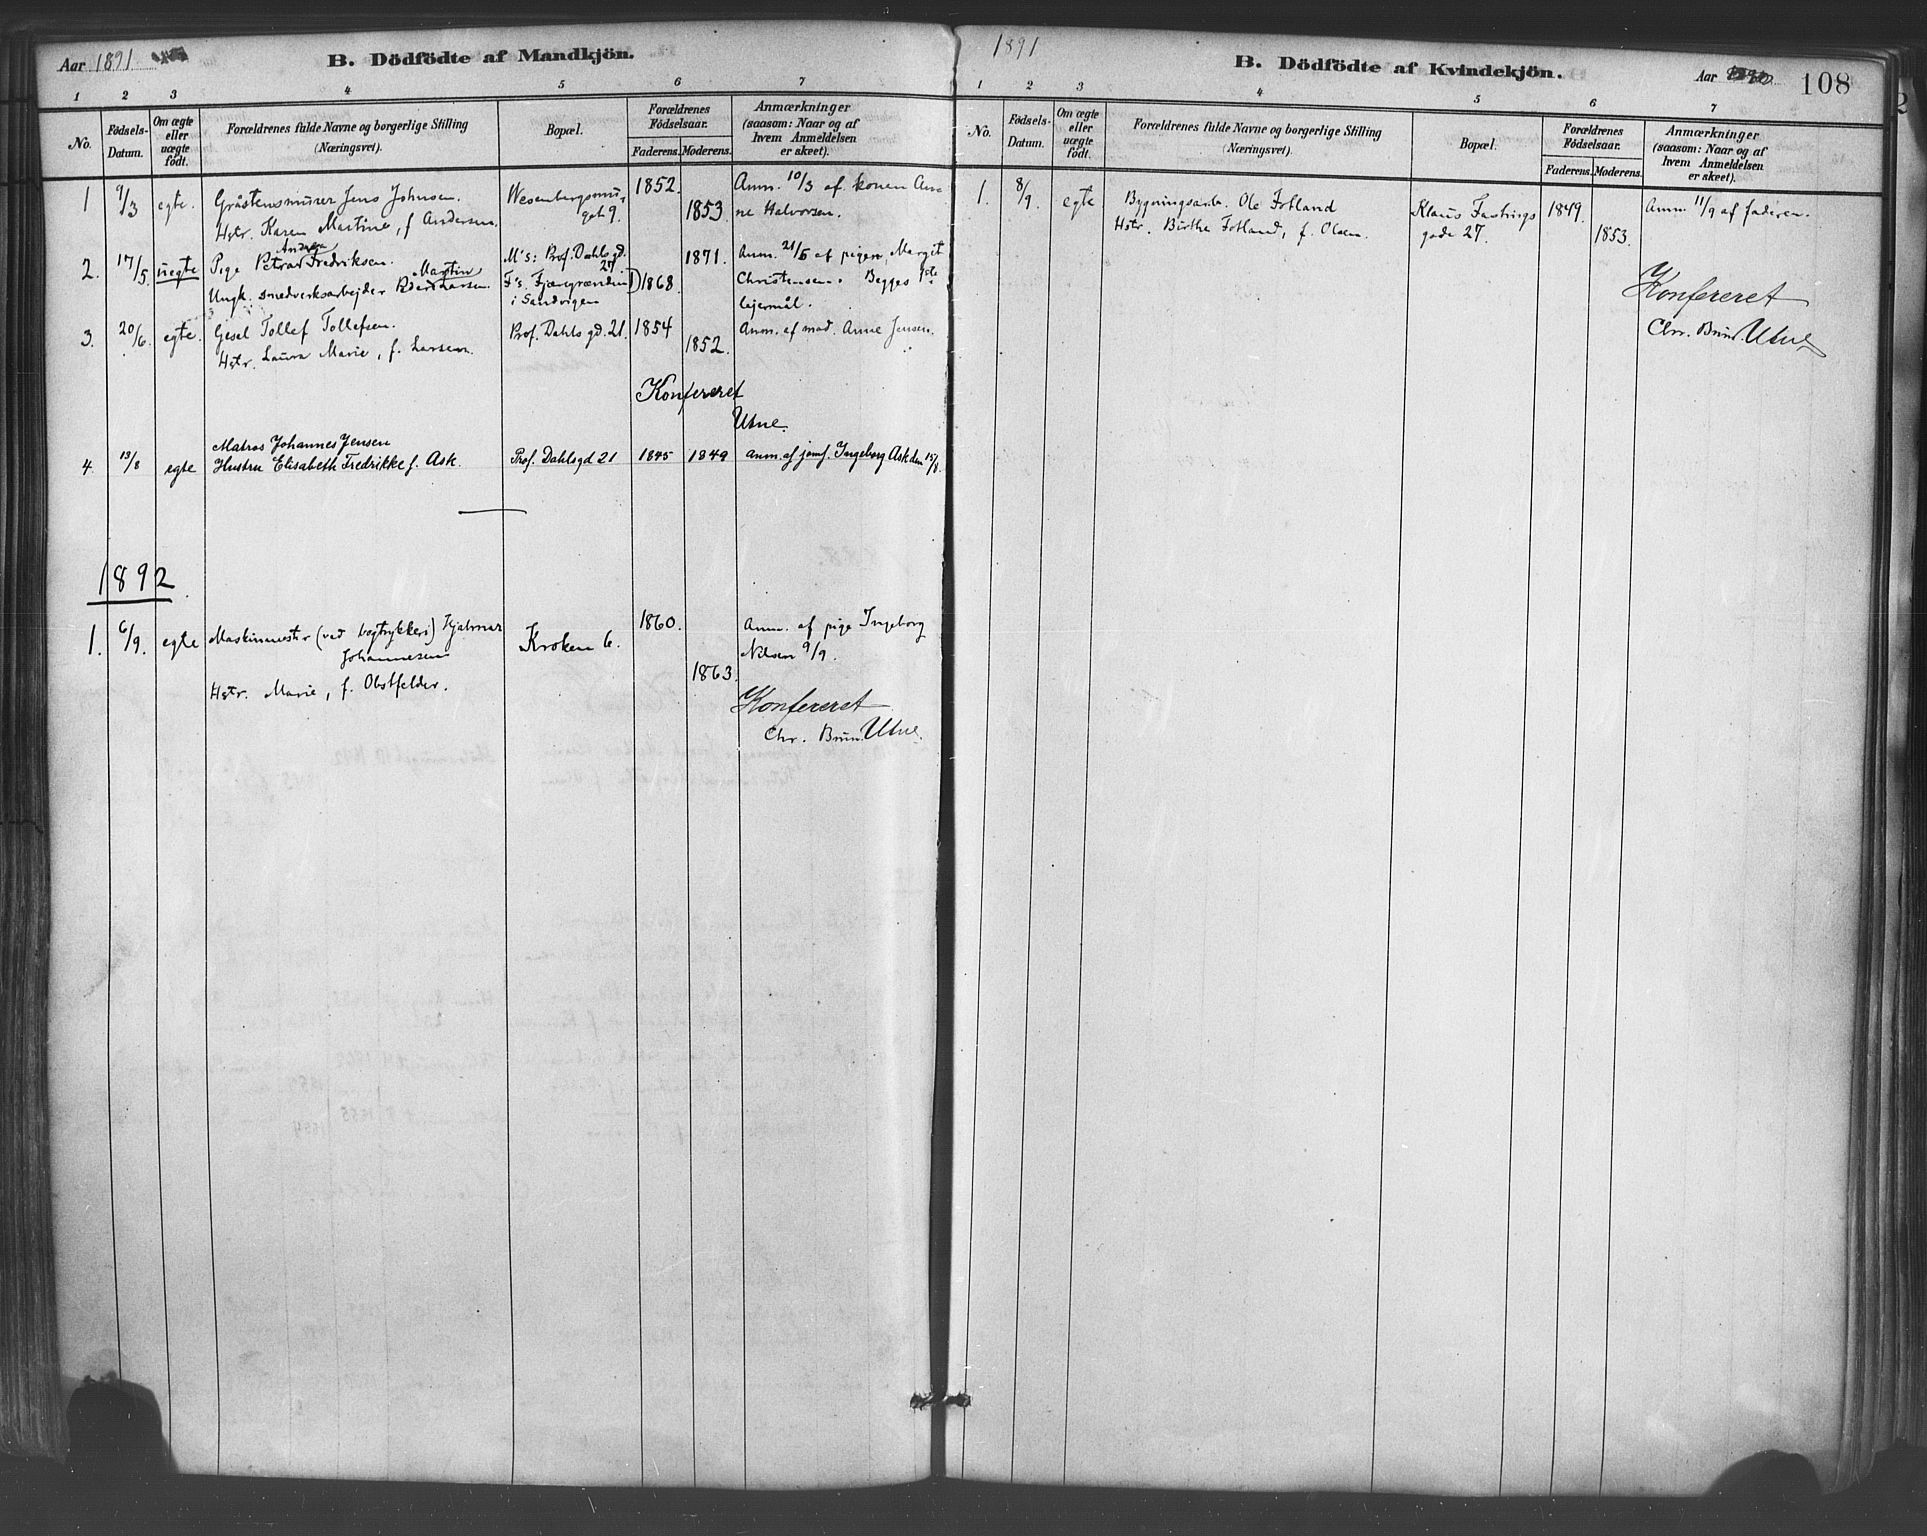 Aar 1891
B. Dödfödte af Mandkjön.
1 2 3 4 5 6 7
No. Födsels-Datum. Om ægte eller uægte födt. Forældrenes fulde Navne og borgerlige Stilling (Næringsvei). Bopæl. Forældrenes Födselsaar. Faderens. Moderens. Anmærkninger (saasom: Naar og af hvem Anmeldelsen er skeet).
1 9/3 egte. Gråstensmurer Jens Johnsen. Wesenbergsmu- 1852. Anm. 10/3 af konen An-
Hstr. Karen Martine, f. Andersen. get 9. 1853 ne Halvorsen.
Andrea
2. 17/5 uegte Pige Petra Fredriksen. M's: Prof. Dahls gd. 1871. Anm. 21/5 af pigen Margit
Martin 27
Ungk. smedverksarbejder Larsen F's: Fjæregrænden 1868 Christensen. Begges 1ste
i Sandvigen lejermål.
3. 20/6 egte. Gesel Tollef Tollefsen. Prof. Dahls gd. 21. 1854 Anm. af mad. Anne Jensen.
Hstr. Laura Marie, f. Larsen. 1852.
Konfereret
Utne.
Matros Johannes Jensen
4. 13/8 egte Hustru Elisabeth Fredrikke f. Ask. Prof. Dahlsgd 21 1845 1849 anm. af jomf. Ingeborg Ask den 15/8
1892
1. 6/9. egte Maskinmester (ved bogtrykkeri) Hjalmar Kroken 6. 1860. Anm. af pige Ingeborg
Johannesen Nilsen 9/9.
Hstr. Marie, f. Obstfelder. 1863.
Konfereret
Chr. Brun. Utne.
1891
B. Dödfödte af Kvindekjön.
Aar 108
1 2 3 4 5 6 7
No. Födsels-Datum. Om ægte eller uægte födt. Forældrenes fulde Navne og borgerlige Stilling (Næringsvei). Bopæl. Forældrenes Födselsaar. Faderens. Moderens. Anmærkninger (saasom: Naar og af hvem Anmeldelsen er skeet).
1. 8/9. egte Bygningsarb. Ole Fotland Klaus Fastings 1849. Anm. 11/9 af faderen.
Hstr. Birthe Fotland, f. Olsen. gade 27. 1853.
Konfereret
Chr. Brun. Utne